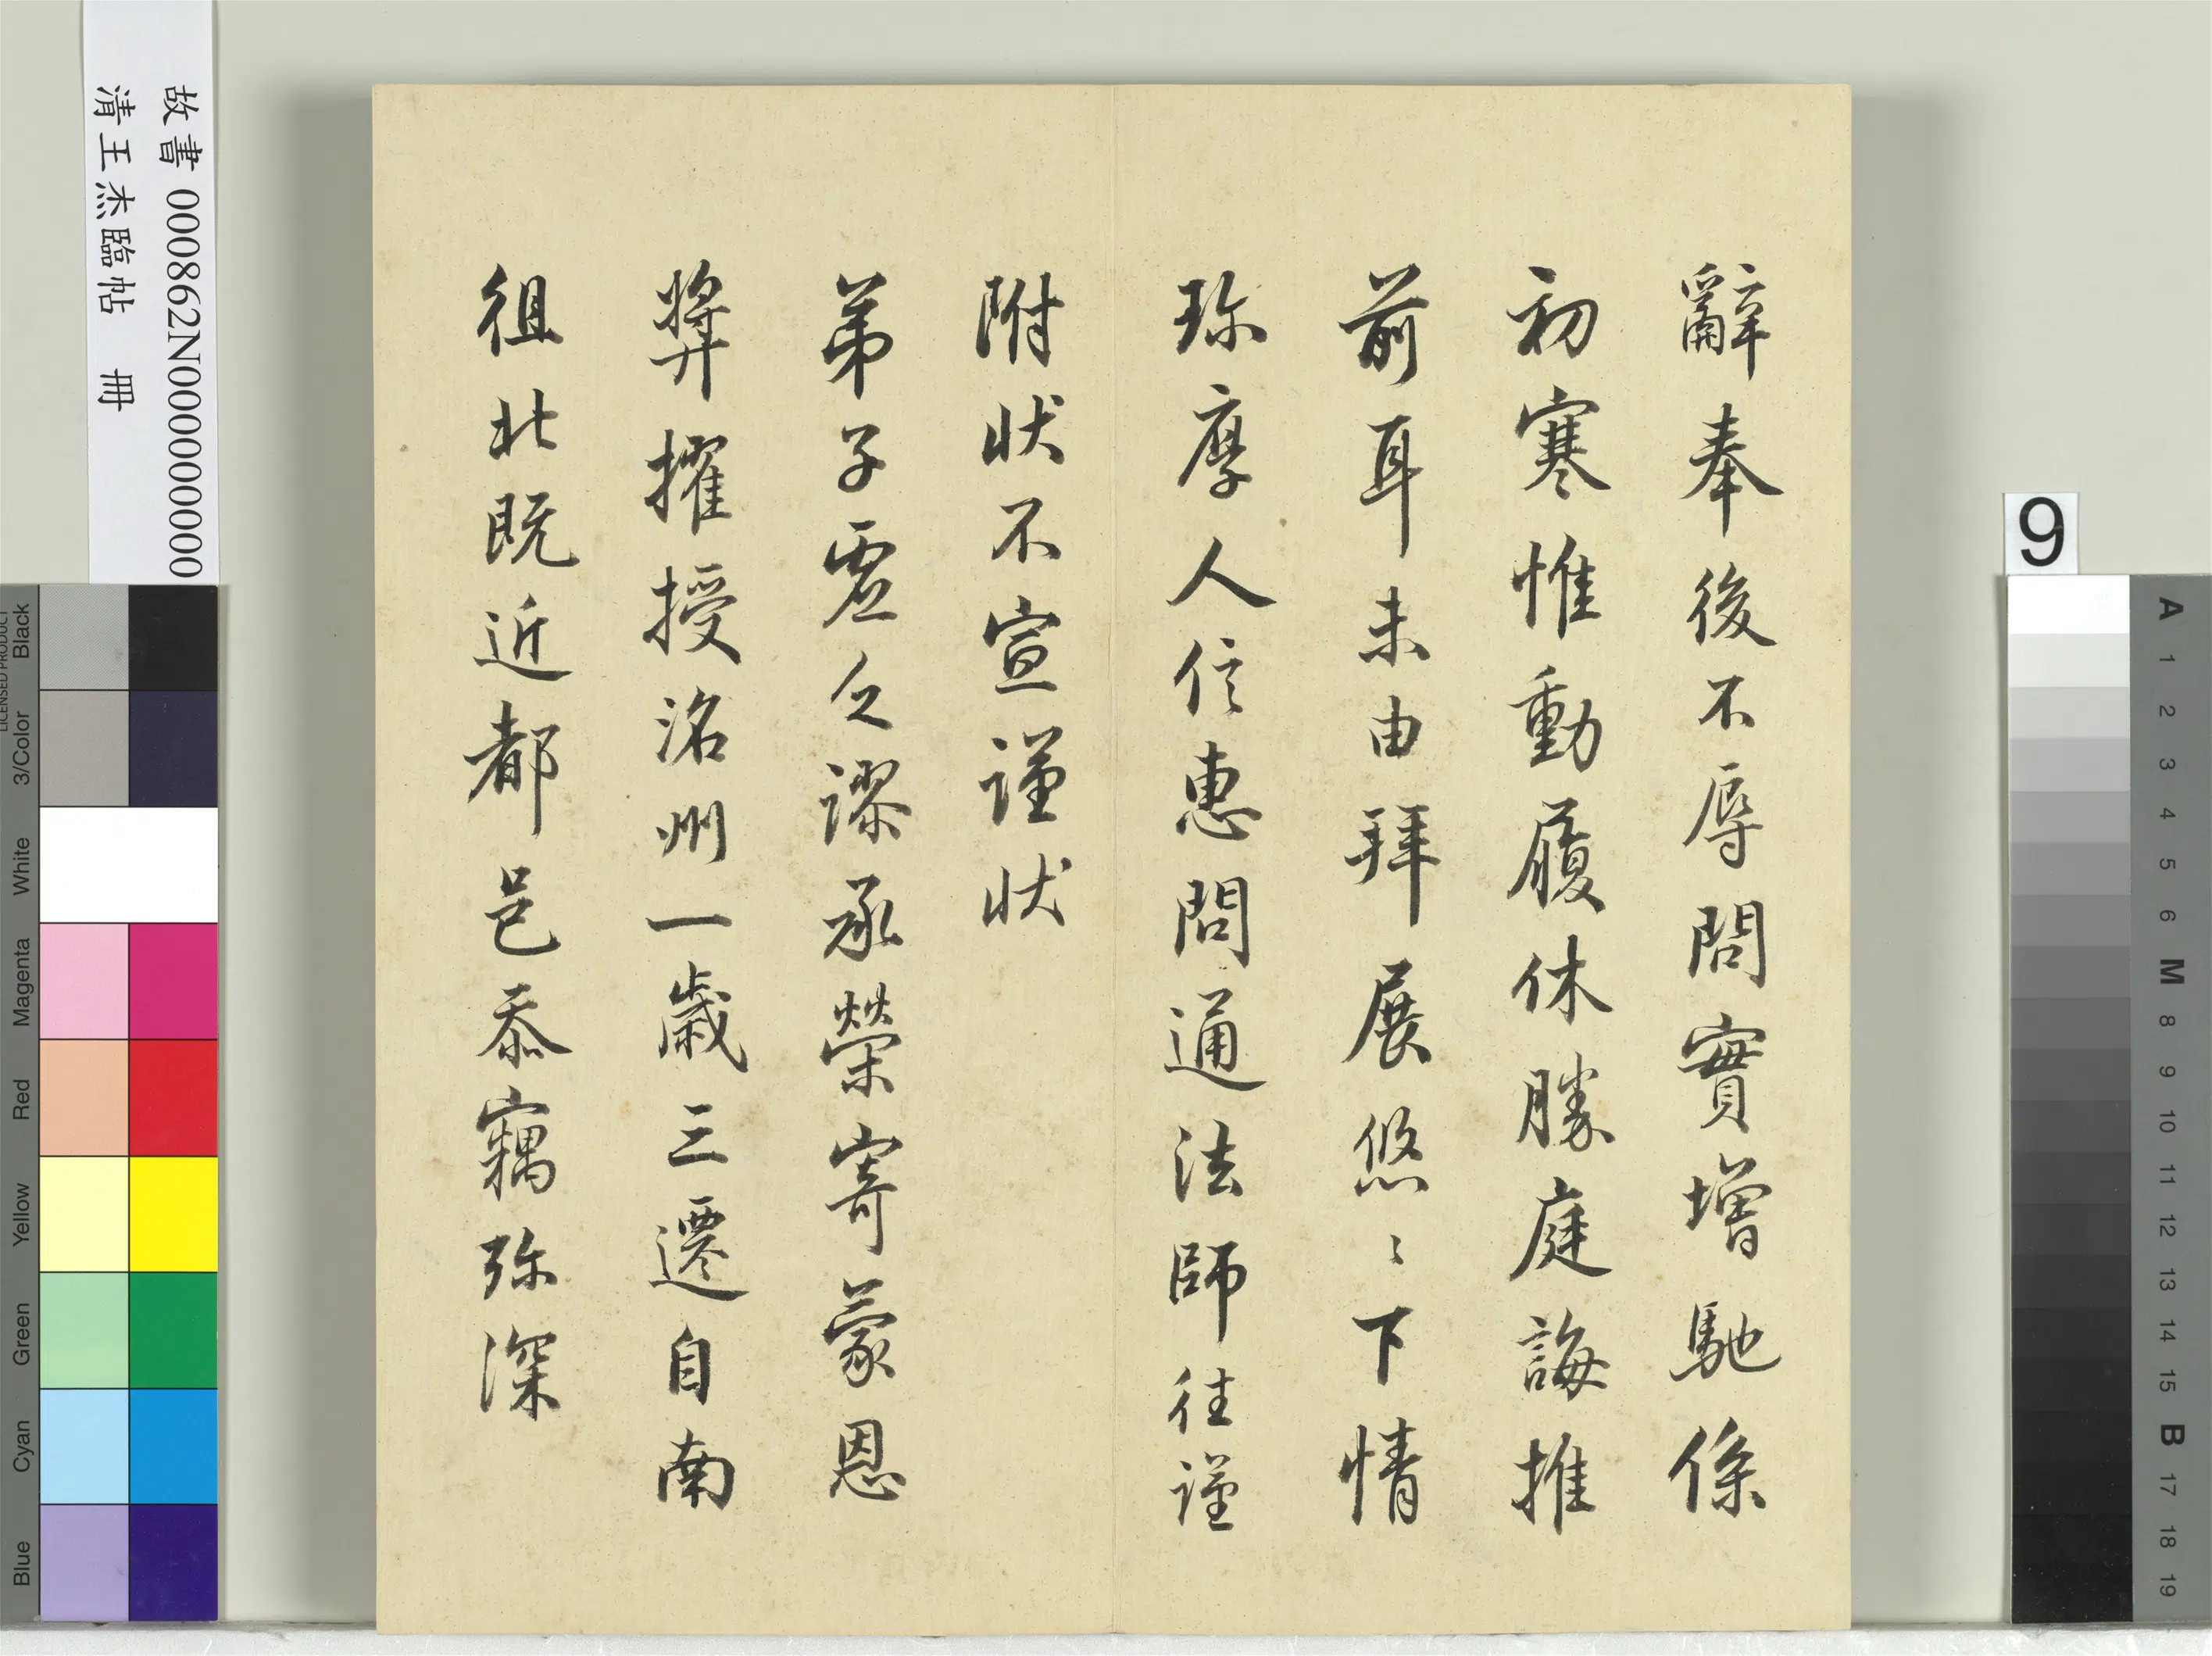 辭奉後不辱問實增馳係
初寒惟動履休勝庭誨推
前耳未由拜展悠〻下情
珎摩人信惠問通法師往謹
附状不宣謹状
弟子虛乏謬承榮寄蒙恩
奬擢授洺州一歲三遷自南
徂北既近都邑忝竊弥深
故書 000862N000000000
清王杰臨帖 冊
9
LICENSED PRODUCT
Black
3/Color
White
Magenta
Red
Yellow
Green
Cyan
Blue
A
1
2
3
4
5
6
M
8
9
10
11
12
13
14
15
B
17
18
19